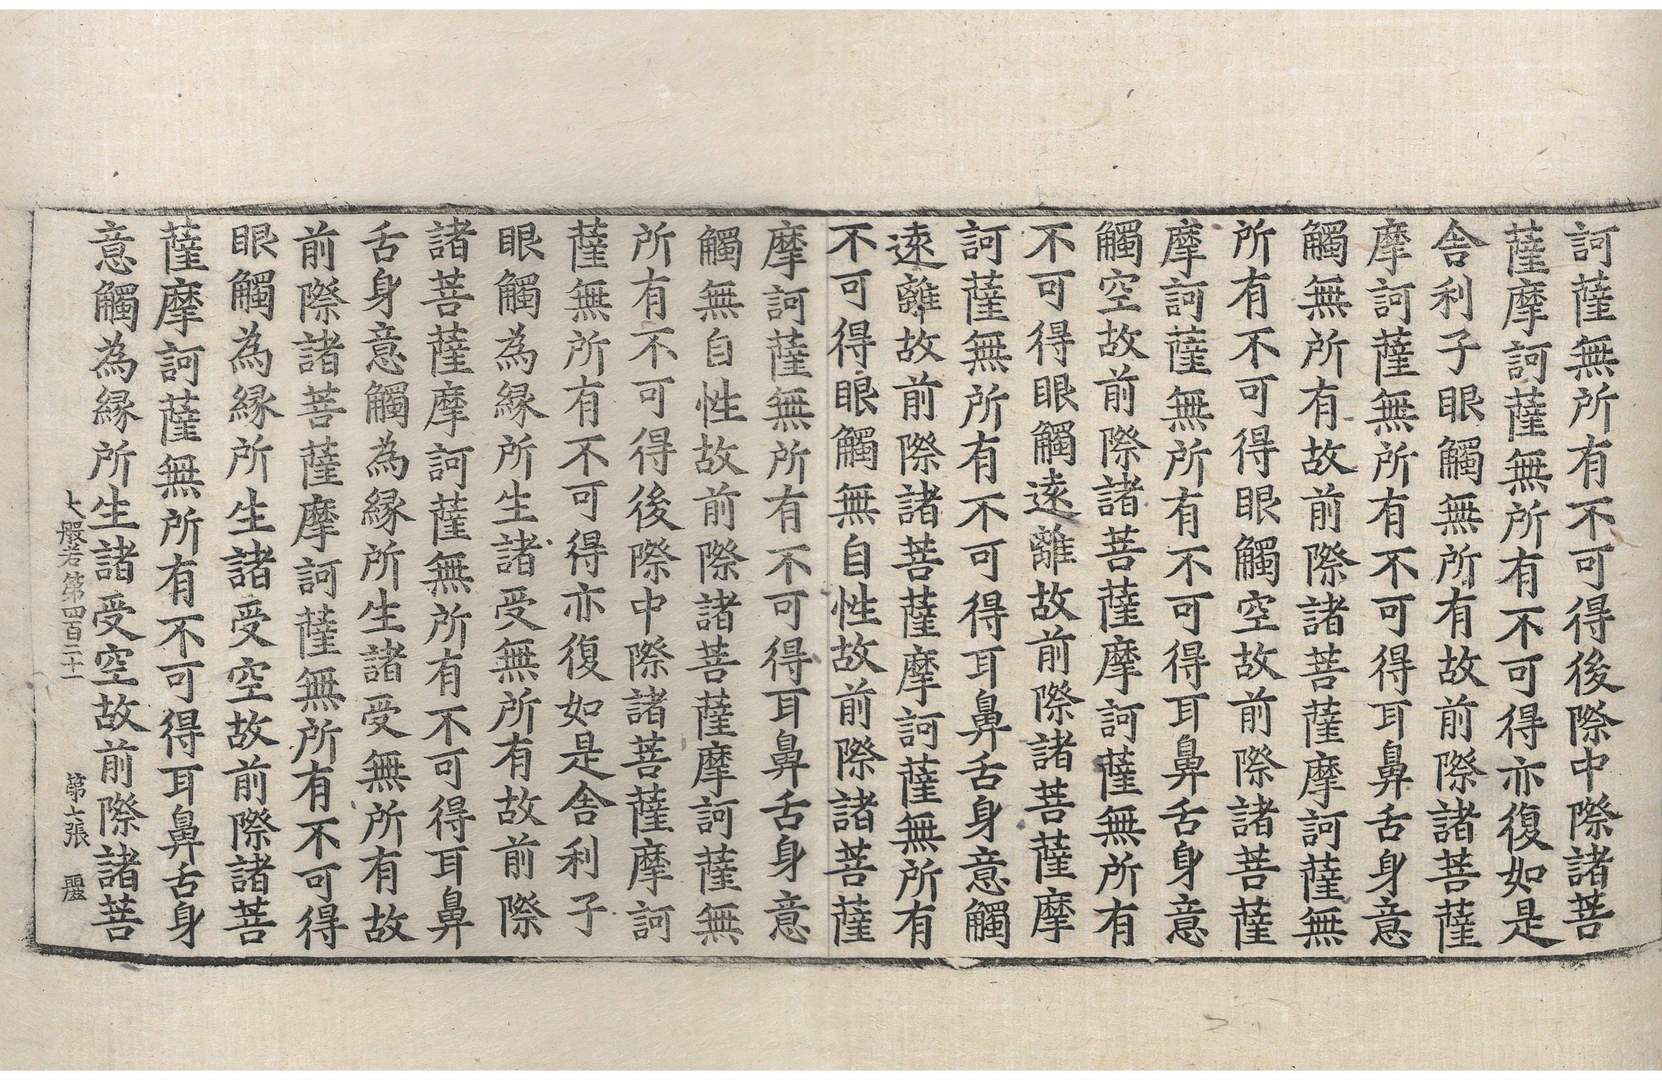 訶薩無所有不可得後際中際諸菩
薩摩訶薩無所有不可得亦復如是
舍利子眼觸無所有故前際諸菩薩
摩訶薩無所有不可得耳鼻舌身意
觸無所有故前際諸菩薩摩訶薩無
所有不可得眼觸空故前際諸菩薩
摩訶薩無所有不可得耳鼻舌身意
觸空故前際諸菩薩摩訶薩無所有
不可得眼觸遠離故前際諸菩薩摩
訶薩無所有不可得耳鼻舌身意觸
遠離故前際諸菩薩摩訶薩無所有
不可得眼觸無自性故前際諸菩薩
摩訶薩無所有不可得耳鼻舌身意
觸無自性故前際諸菩薩摩訶薩無
所有不可得後際中際諸菩薩摩訶
薩無所有不可得亦復如是舍利子
眼觸為緣所生諸受無所有故前際
諸菩薩摩訶薩無所有不可得耳鼻
舌身意觸為緣所生諸受無所有故
前際諸菩薩摩訶薩無所有不可得
眼觸為緣所生諸受空故前際諸菩
薩摩訶薩無所有不可得耳鼻舌身
意觸為緣所生諸受空故前際諸菩
大般若第四百二十一 第七張 麗